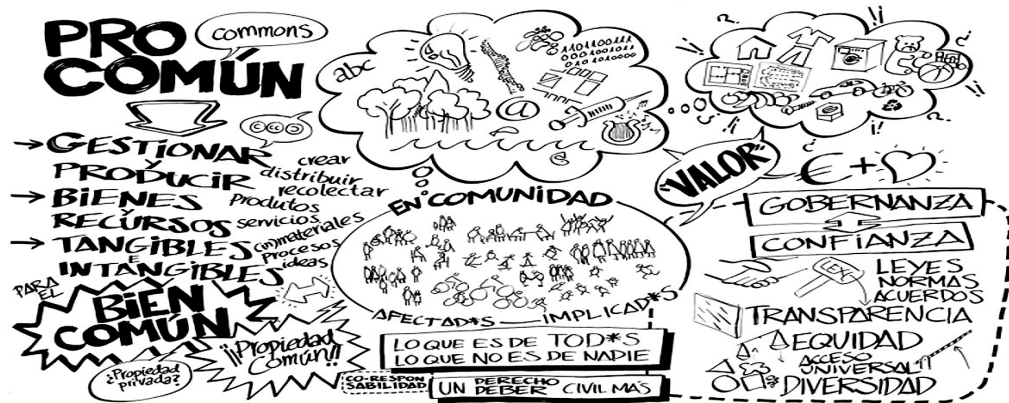 PRO
COMÚN
commons
→ GESTIONAR
Y
PRODUCIR
crear
distribuir
recolectar
→ BIENES
Y
RECURSOS
Produtos
servicios
→ TANGIBLES
E
INTANGIBLES
(inmateriales
procesos
ideas
PARA
EL
BIEN
COMÚN
¿Propiedad
privada?
¡¡Propiedad
Común!!
abc
@
EN COMUNIDAD
AFECTAD*S — IMPLICAD*S
LO QUE ES DE TOD*S
LO QUE NO ES DE NADIE
CO-RESPON
SABILIDAD
UN DERECHO
DEBER
CIVIL MÁS
"VALOR"
€ +
GOBERNANZA
CONFIANZA
LEYES
NORMAS
ACUERDOS
TRANSPARENCIA
EQUIDAD
ACCESO
UNIVERSAL
DIVERSIDAD